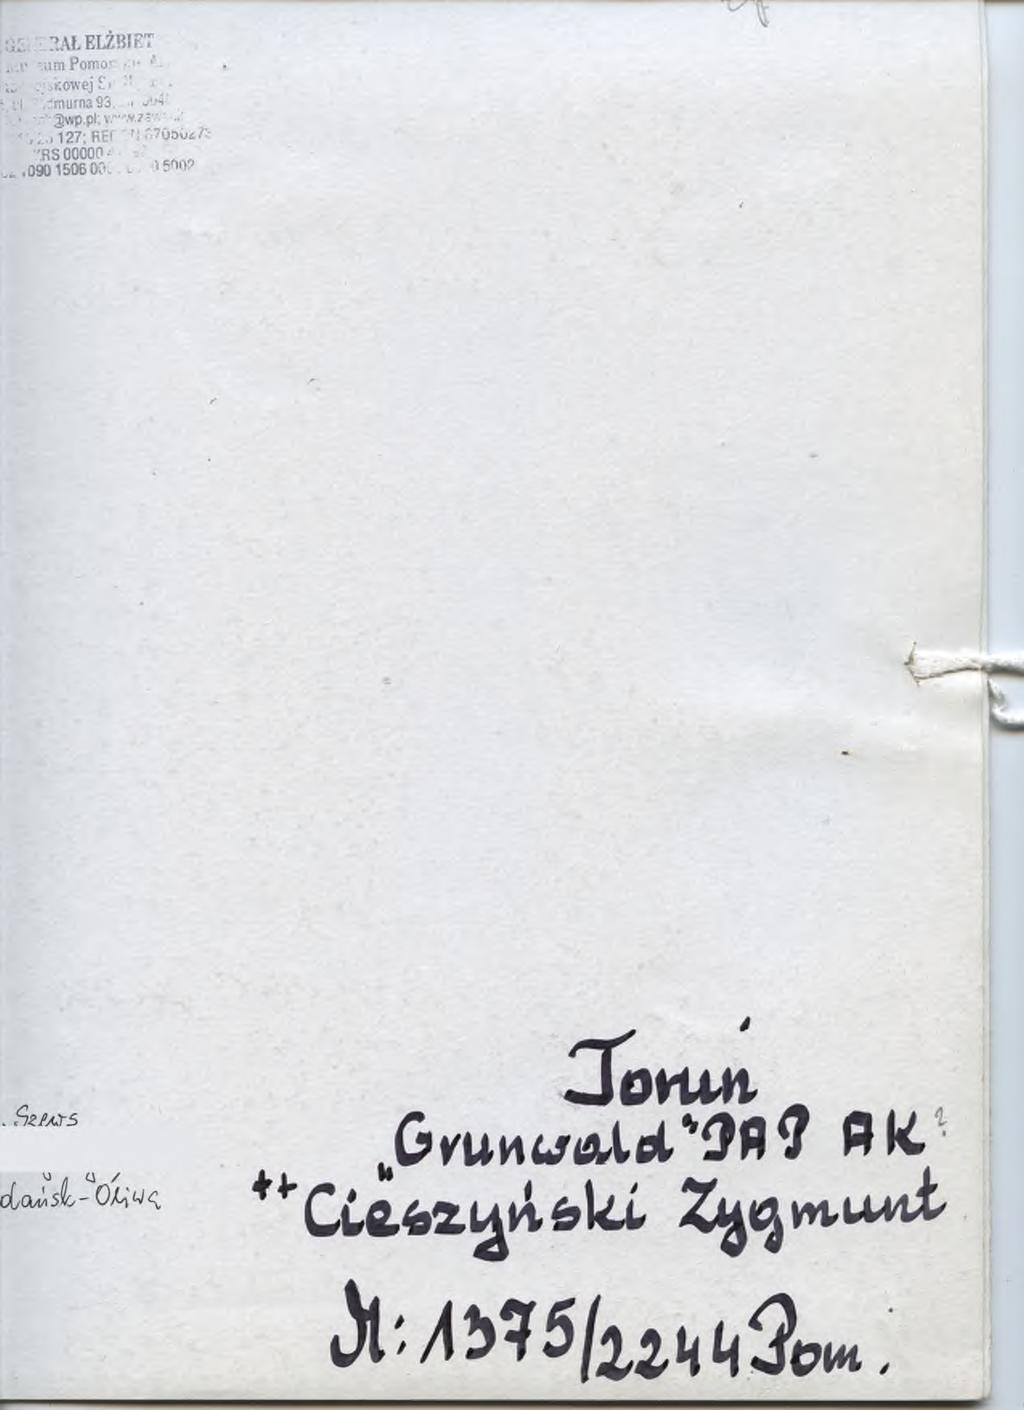 RAŁ ELŻBIET
Pomor
skowej
murna 93,
@wp.pl;
127;
RS 00000
090 1506
. Szews
dańsk-Oliwa
Toruń
„Grunwald" PAP AK ?
++ Cieszyński Zygmunt
M: 1375/2244 Pom.